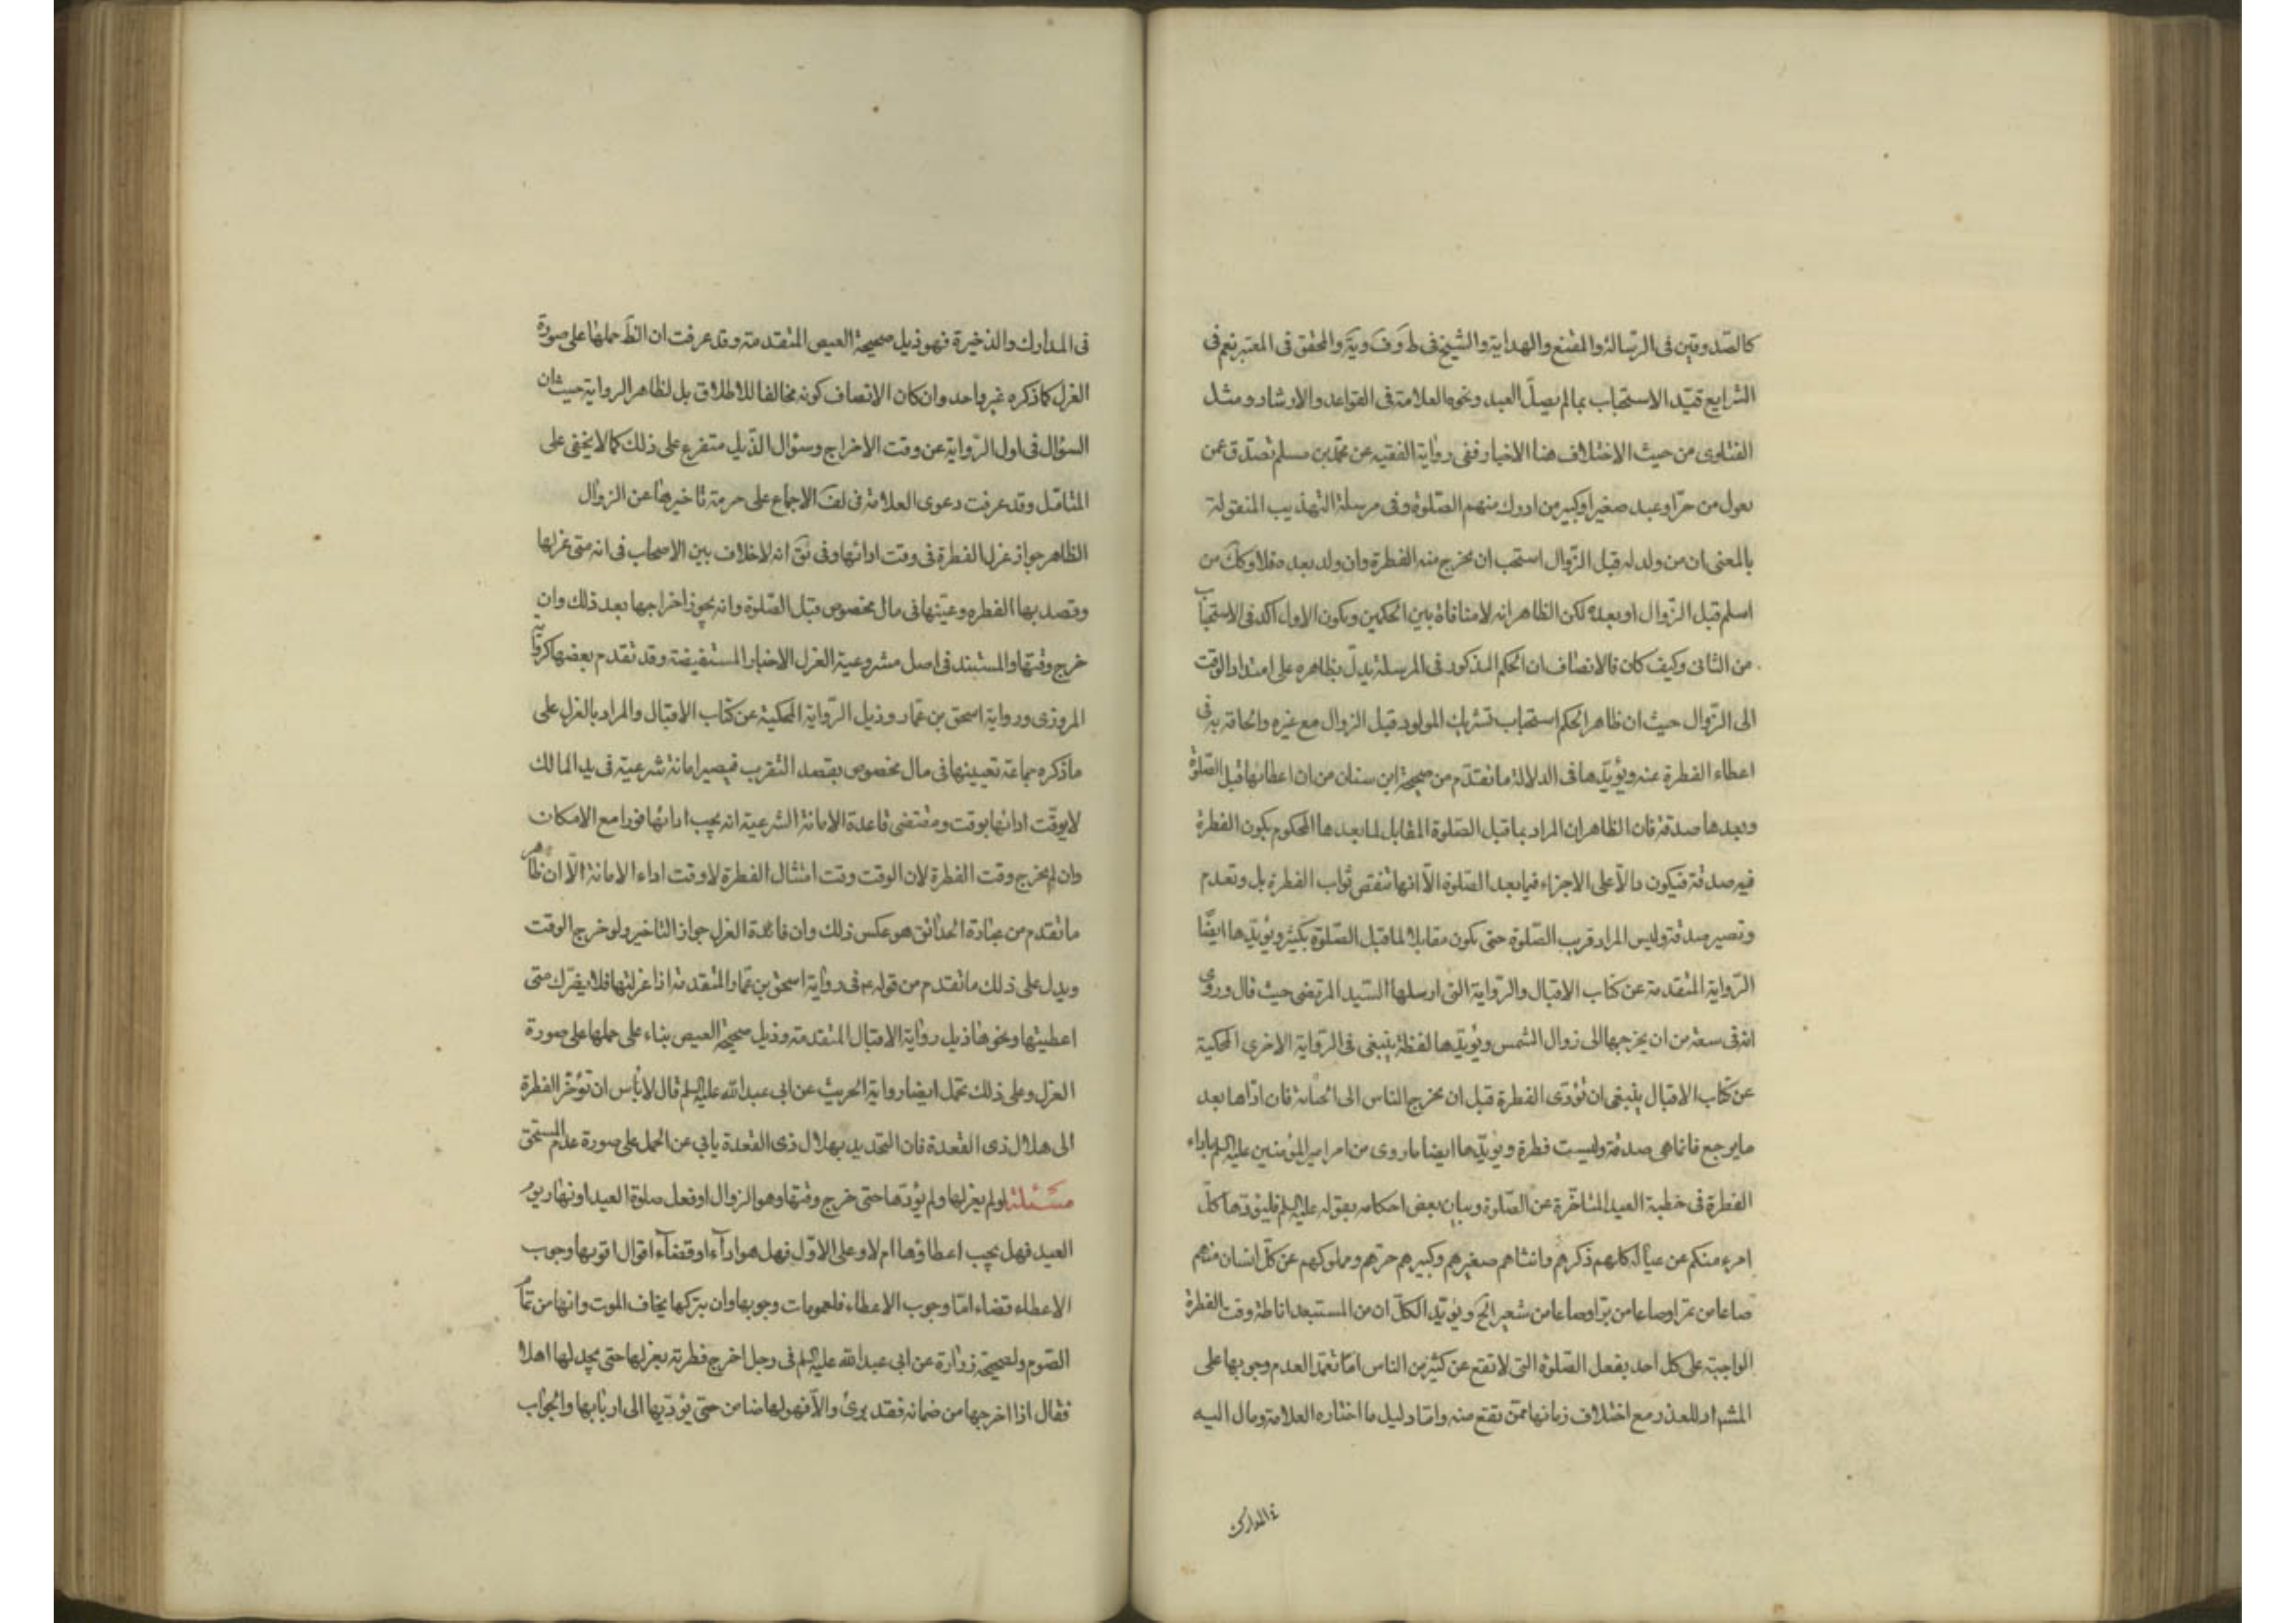 كالصّدوقين فى الرّسالة والمقنع والهداية والشيخ فى ط وف ويه والمحقق فى المعتبر نعم فى
الشرايع قيّد الاستحباب بما لم يصلّ العيد ونحوه العلامة فى القواعد والارشاد ومثل
الفتاوى من حيث الاختلاف هنا الاخبار ففى رواية الفقيه عن محمّد بن مسلم تصدق عن
تعول من حرّ او عبد صغير او كبير من ادرك منهم الصّلوة وفى مرسلة التهذيب المنقولة
بالمعنى ان من ولد له قبل الزّوال استحب ان يخرج منه الفطرة وان ولد بعده فلا وكك من
اسلم قبل الزّوال او بعده لكن الظاهر انه لا منافاة بين الحكمين ويكون الاول اكد فى الاستحباب
من الثانى وكيف كان فالانصاف ان الحكم المذكور فى المرسلة يدلّ بظاهره على امتداد الوقت
الى الزّوال حيث ان ظاهر الحكم استحباب تشريك المولود قبل الزوال مع غيره والحاقه به فى
اعطاء الفطرة عنه ويؤيّدها فى الدلالة ما تقدّم من صحيحة ابن سنان من ان اعطائها قبل الصّلوة
وبعدها صدقة فان الظاهر ان المراد بما قبل الصّلوة المقابل لما بعدها المحكوم بكون الفطرة
فيه صدقة فيكون دالّا على الاجزاء فيما بعد الصّلوة الّا انها تنقص ثواب الفطرة بل وتعدم
وتصير صدقة وليس المراد قريب الصّلوة حتى يكون مقابلا لما قبل الصّلوة بكثير ويؤيّدها ايضًا
الرّواية المتقدمة عن كتاب الاقبال والرّواية التى ارسلها السّيد المرتضى حيث قال وروى
انه فى سعة من ان يخرجها الى زوال الشمس ويؤيّدها لفظة ينبغى فى الرّواية الاخرى المحكية
عن كتاب الاقبال ينبغى ان تؤدى الفطرة قبل ان يخرج الناس الى الجبانة فان ادّاها بعد
ما يرجع فانما هى صدقة وليست فطرة ويؤيّدها ايضا ما روى من امر امير المؤمنين عليه السلم باداء
الفطرة فى خطبة العيد المتاخّرة عن الصّلوة وبيان بعض احكامه بقوله عليه السلم فليؤدّها كلّ
امرء منكم عن عياله كلهم ذكرهم وانثاهم صغيرهم وكبيرهم حرّهم ومملوكهم عن كلّ انسان منهم
صاعا من تمر او صاعا من برّ او صاعا من شعير الخ ويؤيّد الكلّ ان من المستبعد اناطة وقت الفطرة
الواجبة على كل احد بفعل الصّلوة التى لا تقع عن كثير من الناس امّا تعمّد العدم وجوبها على
المشهور للعذر مع اختلاف زمانها ممّن تقع منه وامّا دليل ما اختاره العلامة ومال اليه
فى المدارك
فى المدارك والذخيرة فهو ذيل صحيحة العيص المتقدمة وقد عرفت ان الظ حملها على صورة
العزل كما ذكره غير واحد وان كان الانصاف كونه مخالفا للاطلاق بل لظاهر الرواية حيث ان
السؤال فى اول الرّواية عن وقت الاخراج وسئوال الذّيل متفرع على ذلك كما لا يخفى على
المتامّل وقد عرفت دعوى العلامة فى لف الاجماع على حرمة تاخيرها عن الزوال
الظاهر جواز عزل الفطرة فى وقت ادائها وفى ئق انه لا خلاف بين الاصحاب فى انه متى عزلها
وقصد بها الفطره وعيّنها فى مال مخصوص قبل الصّلوة وانه يجوز اخراجها بعد ذلك وان
خرج وقتها والمستند فى اصل مشروعية العزل الاخبار المستفيضة وقد تقدم بعضها كرواية
المروزى ورواية اسحق بن عمّار وذيل الرّواية المحكية عن كتاب الاقبال والمراد بالعزل على
ما ذكره جماعة تعيينها فى مال مخصوص بقصد التقرب فيصير امانة شرعية فى يد المالك
لا يوقّت ادائها بوقت ومقتضى قاعدة الامانة الشرعية انه يجب ادائها فورا مع الامكان
وان لم يخرج وقت الفطرة لان الوقت وقت امتثال الفطرة لا وقت اداء الامانة الّا ان ظاهر
ما تقدم من عبارة الحدائق هو عكس ذلك وان فائدة العزل جواز التاخير ولو خرج الوقت
ويدل على ذلك ما تقدم من قوله ع فى رواية اسحق بن عمّار المتقدمة اذا عزلتها فلا يضرّك متى
اعطيتها ونحوها ذيل رواية الاقبال المتقدمة وذيل صحيحة العيص بناء على حملها على صورة
العزل وعلى ذلك تحمل ايضا رواية الحريث عن ابى عبد الله عليه السلم قال لا باس ان تؤخّر الفطرة
الى هلال ذى القعدة فان التحديد بهلال ذى القعدة يابى عن الحمل على صورة عدم المستحق
مسئلة لو لم يعزلها ولم يؤدّها حتى خرج وقتها وهو الزوال او فعل صلوة العيد او نهار يوم
العيد فهل يجب اعطاؤها ام لا وعلى الاوّل فهل هو اداء او قضاء اقوال اقوبها وجوب
الاعطاء قضاء امّا وجوب الاعطاء فلعمومات وجوبها وان بتركها يخاف الموت وانها من تمام
الصّوم ولصحيحة زرارة عن ابى عبد الله عليه السلم فى رجل اخرج فطرته بعزلها حتى يجد لها اهلا
فقال اذا اخرجها من ضمانه فقد برئ والّا فهو لها ضامن حتى يؤدّيها الى اربابها والجواب